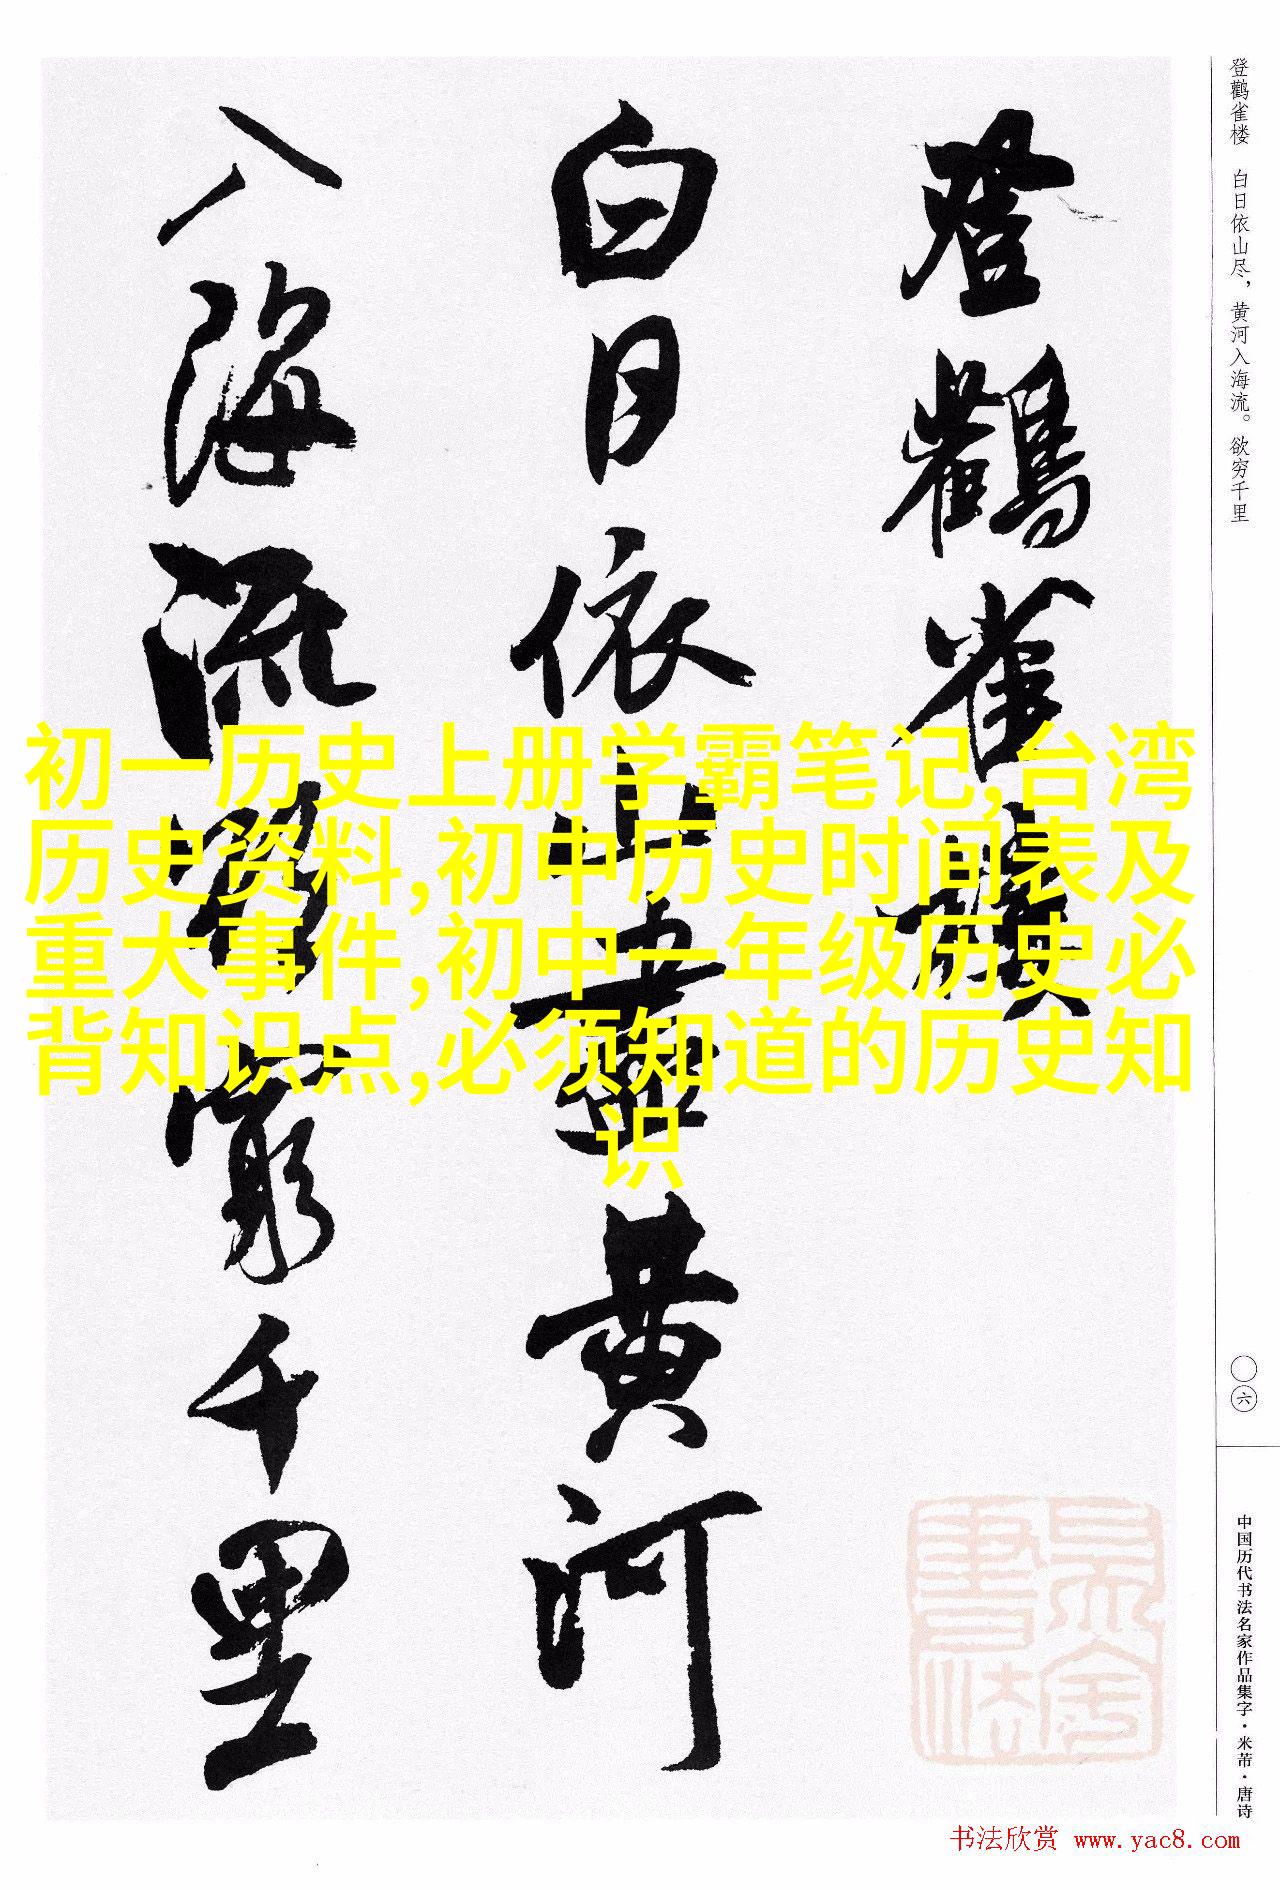 登鹳雀楼 白日依山尽，黄河入海流。欲穷千里
登鸛雀樓
白日依山盡黃河
入海流欲窮千里
初一历史上册学霸笔记,台湾
历史资料,初中历史时间表及
重大事件,初中一年级历史必
背知识点,必须知道的历史知
识
六
中国历代书法名家作品集字·米芾·唐诗
书法欣赏 www.yac8.com